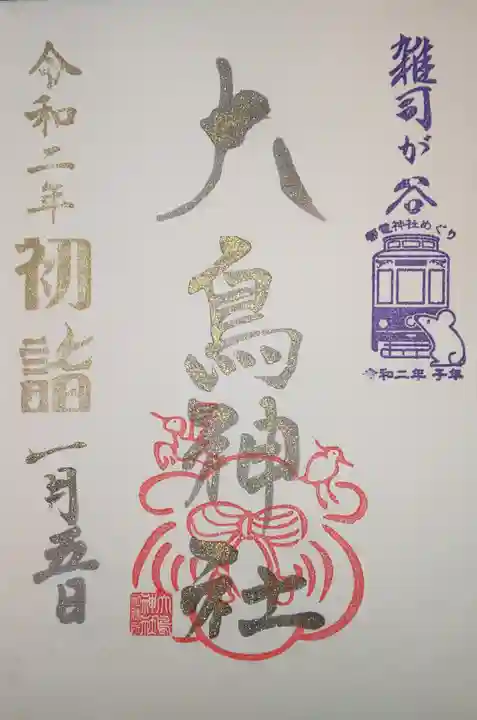 雑司が谷
都電神社めぐり
令和二年 子年
大鳥神社
令和二年
初詣
一月五日